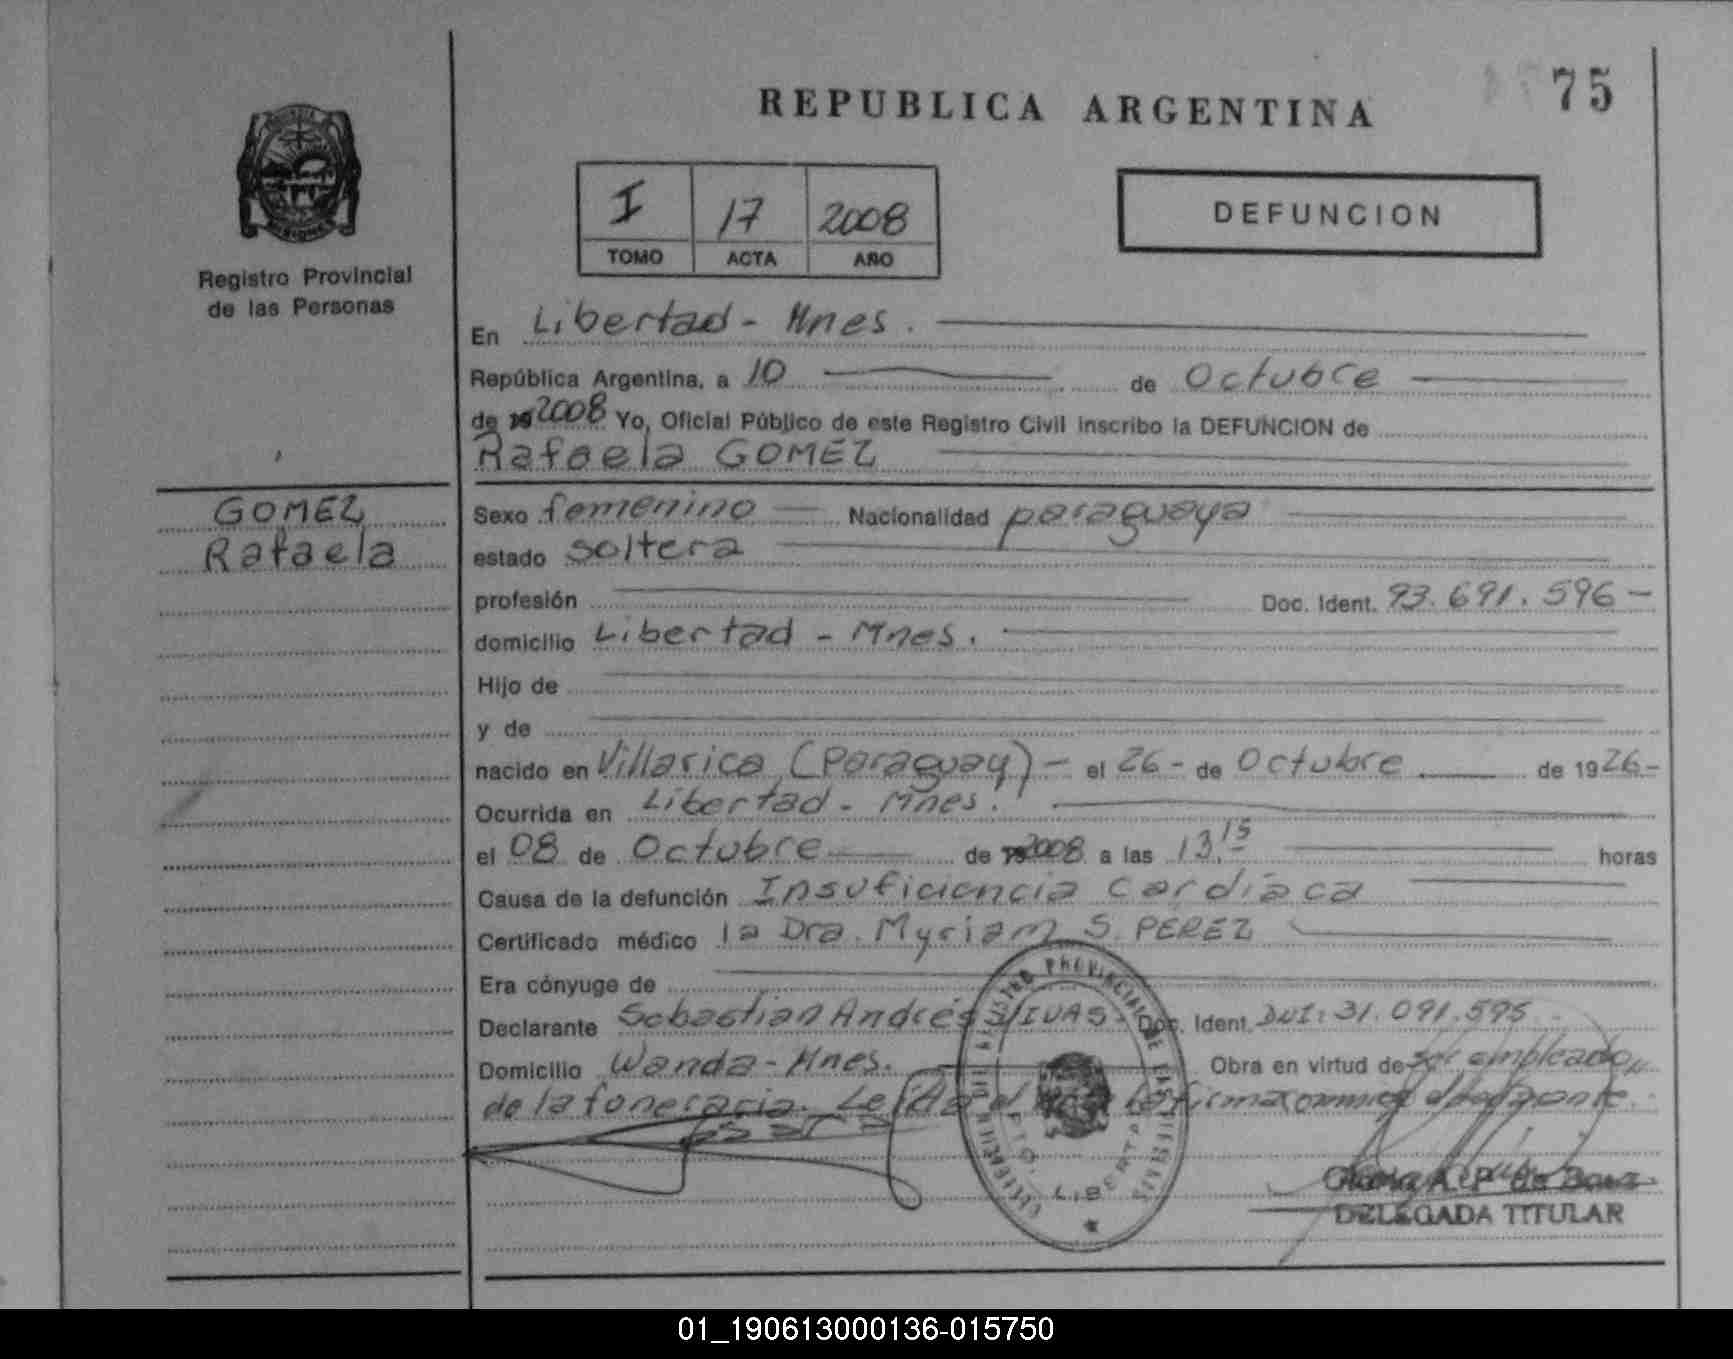 75
REPUBLICA ARGENTINA
I 17 2008
TOMO ACTA AÑO
DEFUNCION
Registro Provincial
de las Personas
En Libertad - Mnes.
República Argentina, a 10 de Octubre
de 19 2008 Yo, Oficial Público de este Registro Civil inscribo la DEFUNCION de
Rafaela GOMEZ
GOMEZ
Rafaela
Sexo femenino Nacionalidad paraguaya
estado soltera
profesión Doc. Ident. 93.691.596-
domicilio Libertad - Mnes.
Hijo de
y de
nacido en Villarica (Paraguay) - el 26 - de Octubre de 1926-
Ocurrida en Libertad - Mnes.
el 08 de Octubre de 2008 a las 13.15 horas
Causa de la defunción Insuficiencia Cardíaca
Certificado médico la Dra. Myriam S. PEREZ
Era cónyuge de
Declarante Sebastian Andrés VIVAS Doc. Ident. DNI: 31.091.595
Domicilio Wanda - Mnes. Obra en virtud de ser empleado
de la funeraria. Leída el acta la firma conmigo el declarante.
REGISTRO PROVINCIAL DE LAS PERSONAS
DPTO. LIBERTAD
DELEGADA TITULAR
01_190613000136-015750